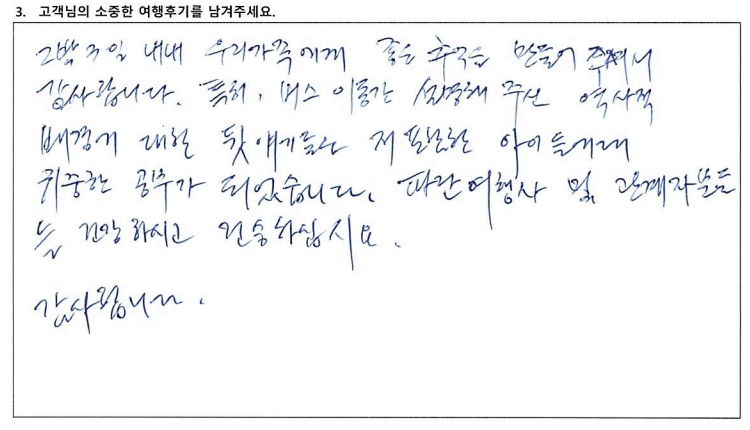 3. 고객님의 소중한 여행후기를 남겨주세요.
2박 3일 내내 우리가족에게 좋은 추억을 만들어 주셔서
감사합니다. 특히, 버스 이동간 설명해 주신 역사적
배경에 대한 뒷얘기들은 저 포함한 아이들에게
귀중한 공부가 되었습니다. 파란여행사 및 관계자분들
늘 건강하시고 건승하십시요.
감사합니다.